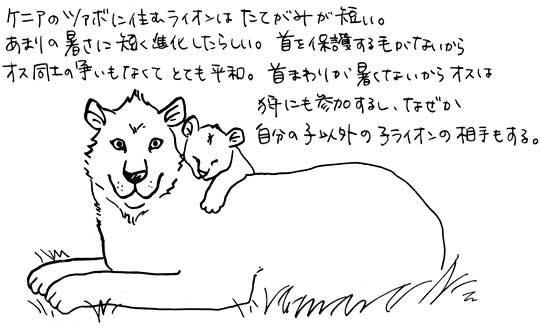 ケニアのツァボに住むライオンは たてがみが短い。
あまりの暑さに短く進化したらしい。首を保護する毛がないから
オス同士の争いもなくて とても平和。首まわりが暑くないからオスは
狩にも参加するし、なぜか
自分の子以外の子ライオンの相手もする。